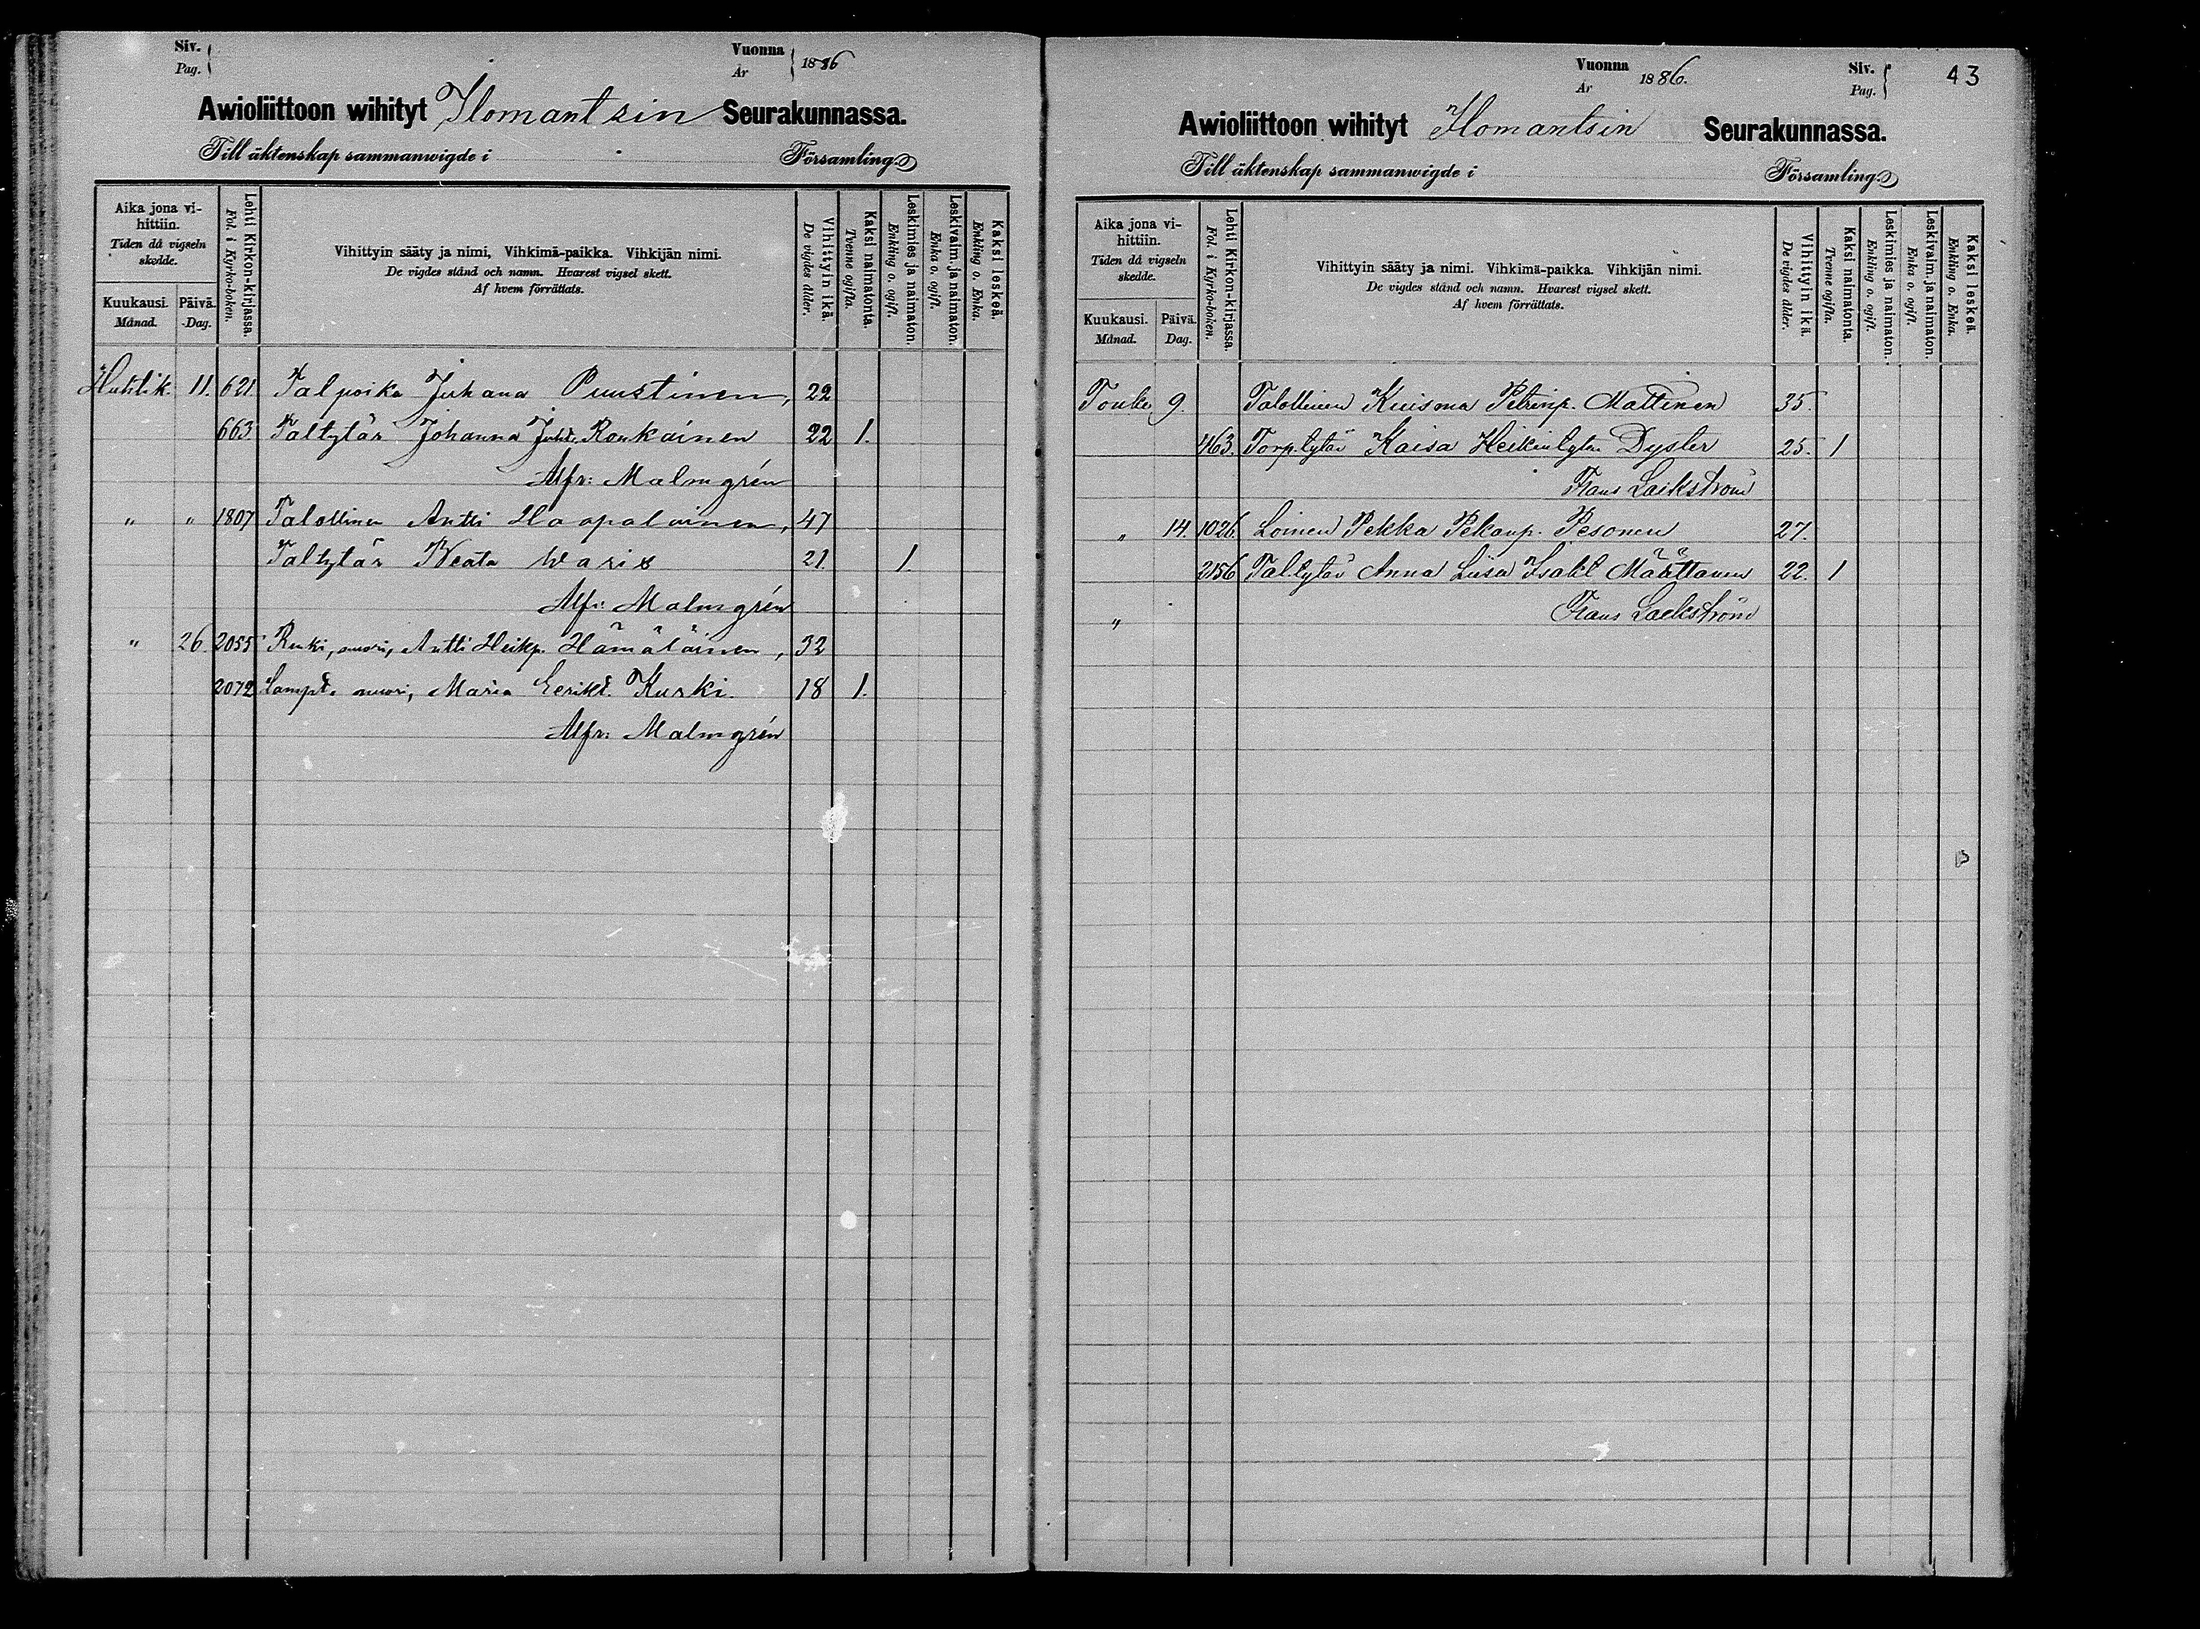 Siv.
Pag.
Vuonna
År
1886
Awioliittoon wihityt Ilomantsin Seurakunnassa.
Till äktenskap sammanwigde i Församling
Aika jona vihittiin.
Tiden då vigseln skedde.
Kuukausi.
Månad.
Päivä.
Dag.
Lehti Kirkon-kirjassa.
Fol. i Kyrko-boken.
Vihittyin sääty ja nimi, Vihkimä-paikka. Vihkijän nimi.
De vigdes stånd och namn. Hvarest vigsel skett.
Af hvem förrättats.
Vihittyin ikä.
De vigdes ålder.
Kaksi naimatonta.
Tvenne ogifta.
Leskimies ja naimaton.
Enkling o. ogift.
Leskivaim. ja naimaton.
Enka o. ogift.
Kaksi leskeä.
Enkling o. Enka.
Huhtik. 11. 621. Talpoika Juhana Puustinen, 22
663 Taltytär Johanna Juht. Ronkainen 22 1.
Alfr: Malmgrén
" " 1807 Talollinen Antti Haapalainen, 47
Taltytär Beata Waris 21. 1.
Alfr: Malmgrén
" 26 2055 Renki, nuori, Antti Heikp. Hämäläinen, 32
2072 Lampt. nuori, Maria Eerikt. Kurki. 18 1.
Alfr: Malmgrén
Vuonna
År
1886.
Siv.
Pag.
43
Awioliittoon wihityt Ilomantsin Seurakunnassa.
Till äktenskap sammanwigde i Församling
Aika jona vihittiin.
Tiden då vigseln skedde.
Kuukausi.
Månad.
Päivä.
Dag.
Lehti Kirkon-kirjassa.
Fol. i Kyrko-boken.
Vihittyin sääty ja nimi. Vihkimä-paikka. Vihkijän nimi.
De vigdes stånd och namn. Hvarest vigsel skett.
Af hvem förrättats.
Vihittyin ikä.
De vigdes ålder.
Kaksi naimatonta.
Tvenne ogifta.
Leskimies ja naimaton.
Enkling o. ogift.
Leskivaim. ja naimaton.
Enka o. ogift.
Kaksi leskeä.
Enkling o. Enka.
Touko 9. Talollinen Kuisma Petrinp. Mattinen 35.
463. Torp.tytär Kaisa Heikintytär Dyster 25. 1
Frans Lackström
" 14. 1026. Loinen Pekka Pekanp. Pesonen 27.
2156 Tal.tytär Anna Liisa Isakt Määttänen 22. 1
" Frans Lackström